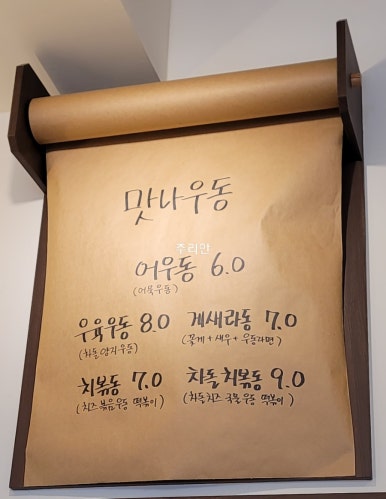 맛나우동
주리만
어우동 6.0
(어묵우동)
우육우동 8.0
(차돌양지우동)
게새라동 7.0
(꽃게+새우+우동라면)
치볶동 7.0
(치즈볶음우동 떡볶이)
차돌치볶동 9.0
(차돌치즈 국물우동 떡볶이)